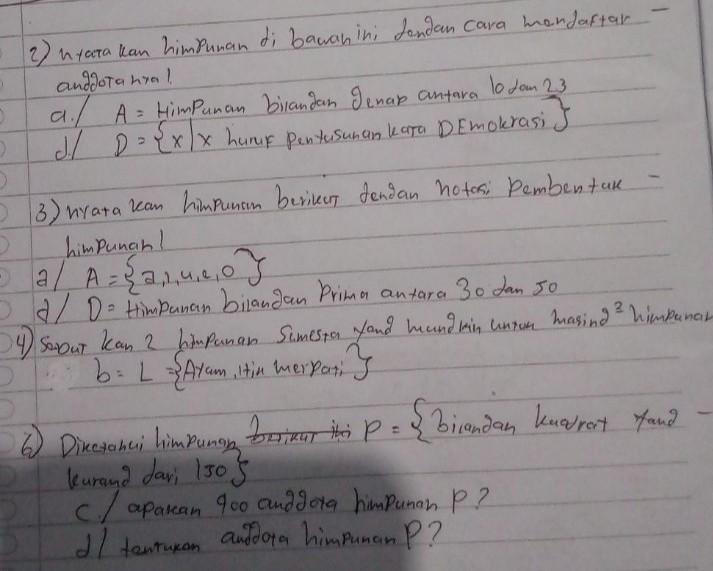 2) nyatakan himpunan di bawah ini dengan cara mendaftar
anggotanya!
a./ A = Himpunan bilangan genap antara 10 dan 23
d/ D = {x|x huruf penyusunan kata DEmokrasi}
3) nyatakan himpunan berikut dengan notasi pembentuk
himpunan!
a/ A = {a,i,u,e,o}
d/ D = Himpunan bilangan prima antara 30 dan 50
4) Sebutkan 2 himpunan semesta yang mungkin untuk masing² himpunan
b = L = {Ayam, itik merpati}
6) Diketahui himpunan berikut ini P = {bilangan kuadrat yang
kurang dari 150}
c./ apakah 900 anggota himpunan P?
d/ tentukan anggota himpunan P?